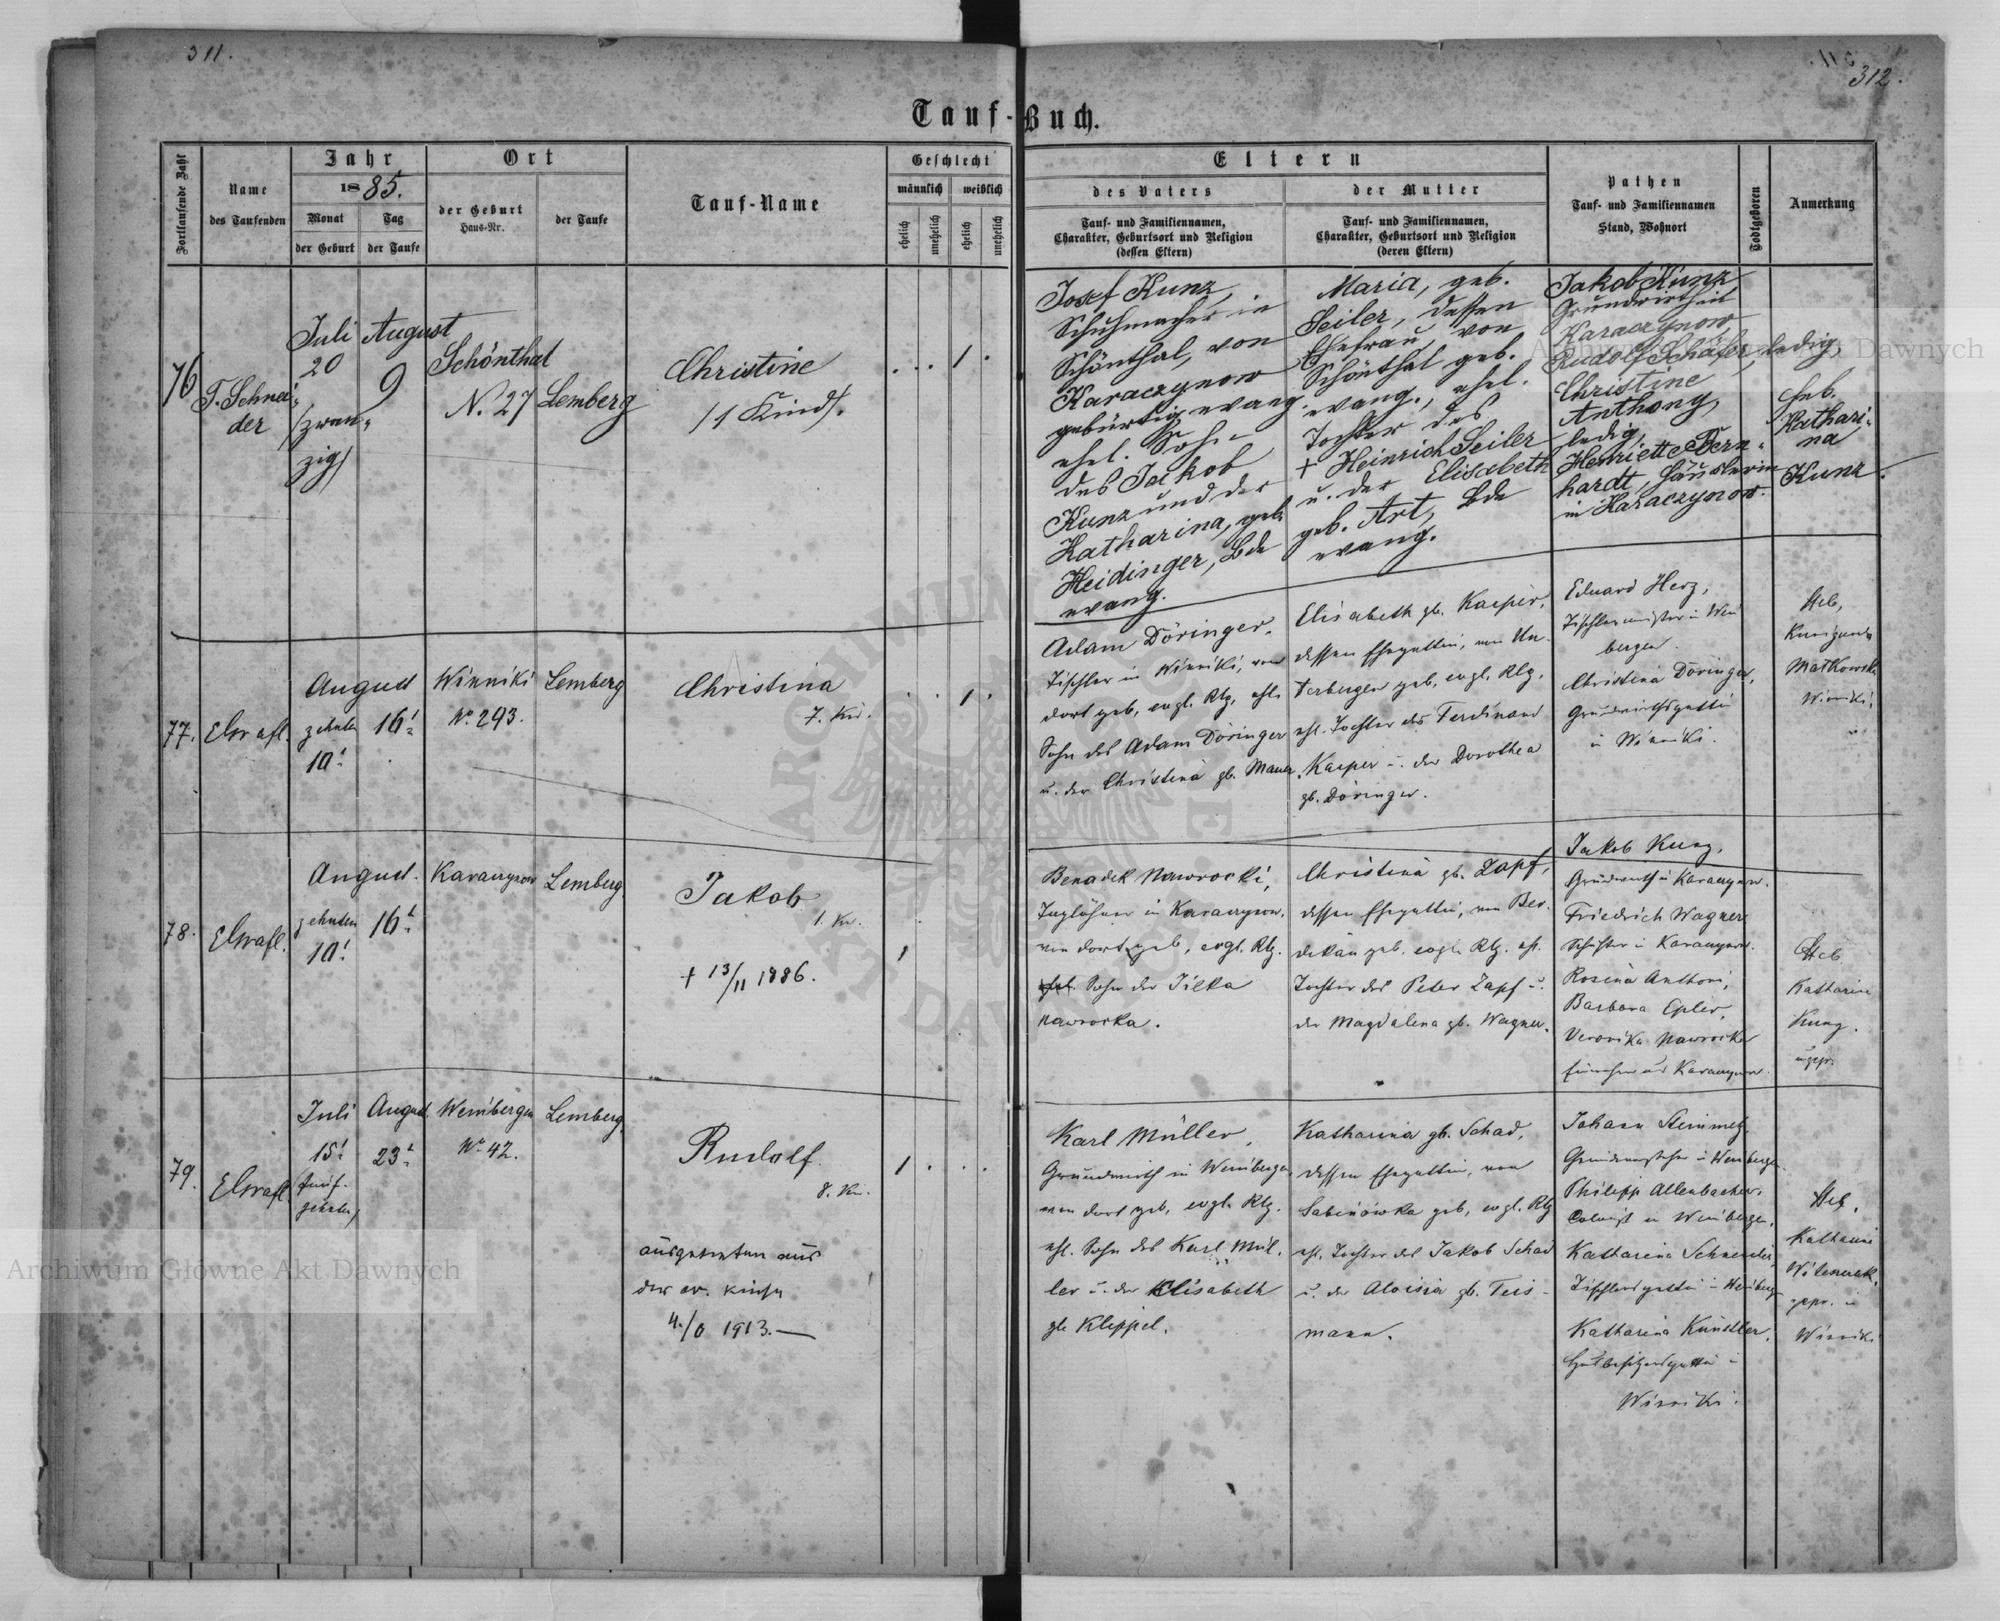 311.
312.
Tauf-Buch.
Fortlaufende Zahl
Name
des Taufenden
Jahr
1885.
Monat
Tag
der Geburt
der Taufe
Ort
der Geburt
Haus-Nr.
der Taufe
Tauf-Name
Geschlecht
männlich
weiblich
ehelich
unehelich
ehelich
unehelich
Eltern
des Vaters
Tauf- und Familiennamen,
Charakter, Geburtsort und Religion
(dessen Eltern)
der Mutter
Tauf- und Familiennamen,
Charakter, Geburtsort und Religion
(deren Eltern)
Pathen
Tauf- und Familiennamen
Stand, Wohnort
Todtgeboren
Anmerkung
76
T. Schnei-
der
Juli
20
(zwan-
zig)
August
9
Schönthal
N. 27
Lemberg
Christine
(1 Kind).
1
Josef Kunz,
Schuhmacher in
Schönthal, von
Karaczynow
gebürtig evang.
ehel. Sohn
des Jakob
Kunz und der
Katharina, geb.
Heidinger, bde
evang.
Maria, geb.
Seiler, dessen
Ehefrau, von
Schönthal geb.
evang., ehel.
Tochter des
+ Heinrich Seiler
u. der Elisabeth
geb. Art, bde
evang.
Jakob Kunz
Grundwirth in
Karaczynow
Rudolf Schäfer, ledig,
Christine
Anthony,
ledig,
Henriette Bern-
hardt, Häuslerin
in Karaczynow.
Heb.
Kathari-
na
Kunz.
77.
Elsrafl.
August
zehnten
10!
16!
Winniki
No. 293.
Lemberg
Christina
7. Kd.
1
Adam Döringer,
Tischler in Winniki, von
dort geb, evgl. Rlg, ehl.
Sohn des Adam Döringer
u. der Christina gb. Mauer.
Elisabeth gb. Kasper,
dessen Ehegattin, von Un-
terbergen geb, evgl. Rlg,
ehl. Tochter des Ferdinand
Kasper u. der Dorothea
gb. Döringer.
Eduard Herz,
Tischlermeister in Wein
bergen.
Christina Döringer,
Grundwirthsgattin
in Winniki.
Heb,
Kunigunde
Winniki
78.
Elsrafl.
August
zehnten
10!
16!
Karaczynow
Lemberg
Jakob
1. Kd.
+ 13/11 1886.
1
Benedek Nawrocki,
Taglöhner in Karaczynow,
von dort geb, evgl. Rlg.
ehl. Sohn der Tilka
Nawrocka.
Christina gb. Zapf,
dessen Ehegattin, von Ber-
dikau geb. evgl. Rlg. ehl.
Tochter des Peter Zapf u.
der Magdalena gb. Wagner.
Jakob Kunz,
Grundwirth in Karaczynow.
Friedrich Wagner
Schuster in Karaczynow.
Rosina Anthoni,
Barbara Epler,
Veronika Nawrocka
Heb
Katharina
Kunz.
79.
Elsrafl.
Juli
15!
(fünf-
zehnten)
August
23!
Weinbergen
No. 42.
Lemberg.
Rudolf.
8. Kd.
1
ausgetreten aus
der ev. Kirche
4./6 1913.—
Karl Müller,
Grundwirth in Weinbergen,
von dort geb, evgl. Rlg.
ehl. Sohn des Karl Mül-
ler u. der Elisabeth
gb. Klippel.
Katharina gb. Schad,
dessen Ehegattin, von
Sabinówka geb, evgl. Rlg
ehl. Tochter des Jakob Schad
u. der Aloisia gb. Teis-
mann.
Johann Steinmetz,
Philipp Allenbacher,
Colonist in Weinbergen,
Katharina Schneider,
Tischlersgattin in Weinberg
Katharina Künstler,
Winniki.
Heb,
Katharina
gepr. in
Winniki
Archiwum Główne Akt Dawnych
Archiwum Główne Akt Dawnych